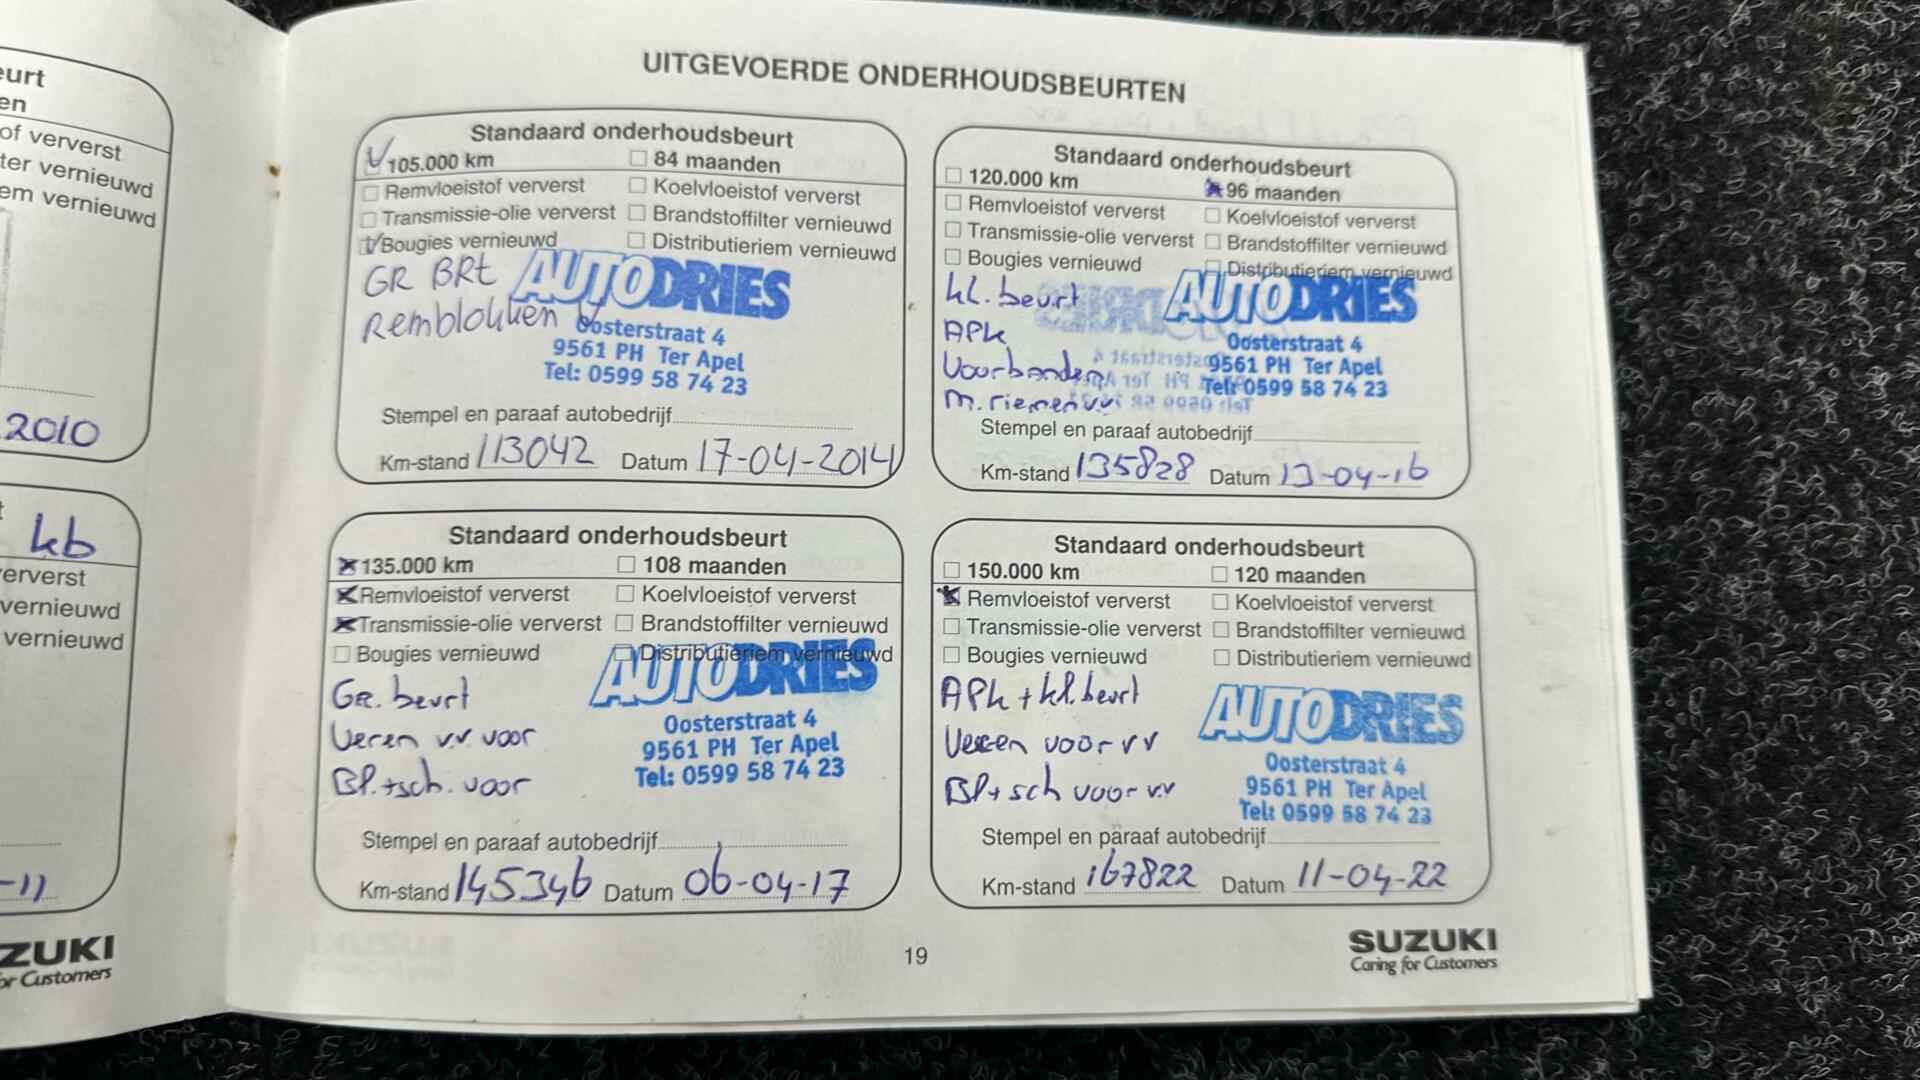 eurt
en
of ververst
ter vernieuwd
em vernieuwd
2010
kb
erverst
vernieuwd
vernieuwd
-11
ZUKI
or Customers
UITGEVOERDE ONDERHOUDSBEURTEN
Standaard onderhoudsbeurt
105.000 km 84 maanden
Remvloeistof ververst Koelvloeistof ververst
Transmissie-olie ververst Brandstoffilter vernieuwd
Bougies vernieuwd Distributieriem vernieuwd
GR BRt
Remblokken v
AUTODRIES
Oosterstraat 4
9561 PH Ter Apel
Tel: 0599 58 74 23
Stempel en paraaf autobedrijf
Km-stand 113042 Datum 17-04-2014
Standaard onderhoudsbeurt
120.000 km 96 maanden
Remvloeistof ververst Koelvloeistof ververst
Transmissie-olie ververst Brandstoffilter vernieuwd
Bougies vernieuwd Distributieriem vernieuwd
kl. beurt
APK
Voorbanden
m.riemen v.v
AUTODRIES
Oosterstraat 4
9561 PH Ter Apel
Tel: 0599 58 74 23
Stempel en paraaf autobedrijf
Km-stand 135828 Datum 13-04-16
Standaard onderhoudsbeurt
135.000 km 108 maanden
Remvloeistof ververst Koelvloeistof ververst
Transmissie-olie ververst Brandstoffilter vernieuwd
Bougies vernieuwd Distributieriem vernieuwd
Gr. beurt
Veren v.v. voor
Bl.+sch. voor
AUTODRIES
Oosterstraat 4
9561 PH Ter Apel
Tel: 0599 58 74 23
Stempel en paraaf autobedrijf
Km-stand 145346 Datum 06-04-17
Standaard onderhoudsbeurt
150.000 km 120 maanden
Remvloeistof ververst Koelvloeistof ververst
Transmissie-olie ververst Brandstoffilter vernieuwd
Bougies vernieuwd Distributieriem vernieuwd
APK + kl. beurt
Veren voor vv
Bl + sch voor v.v
AUTODRIES
Oosterstraat 4
9561 PH Ter Apel
Tel: 0599 58 74 23
Stempel en paraaf autobedrijf
Km-stand 167822 Datum 11-04-22
19
SUZUKI
Caring for Customers